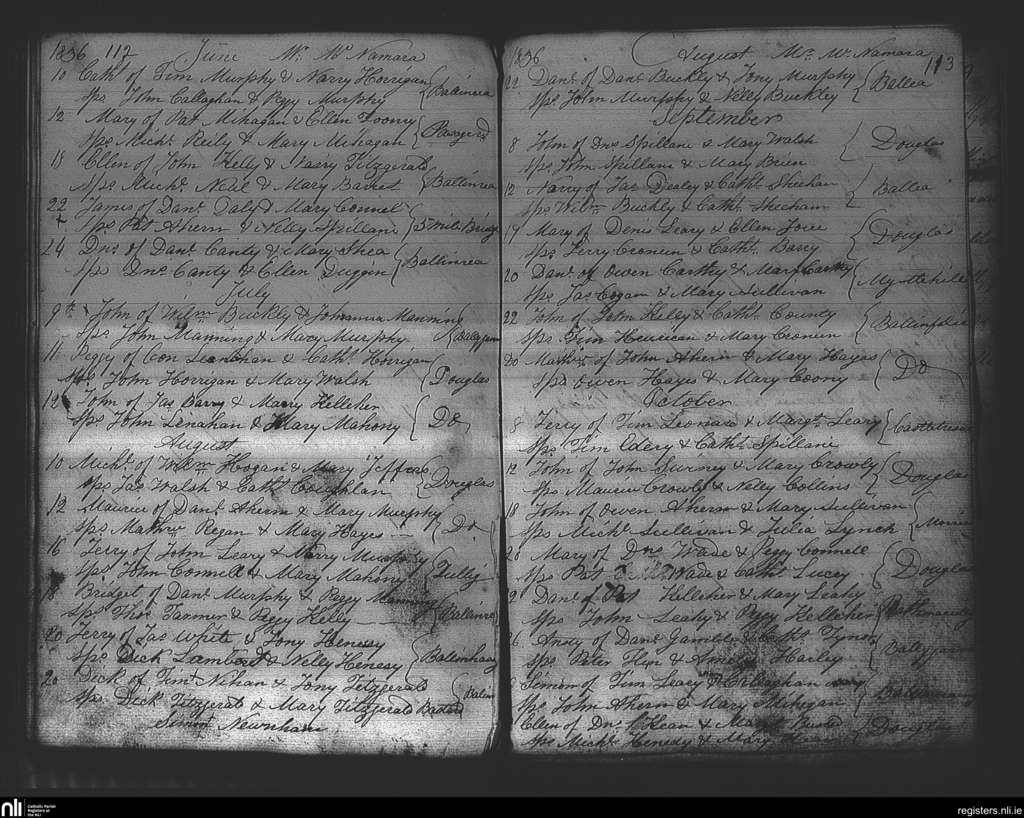 1836 112 June Mr. McNamara
10 Cathe. of Tim Murphy & Norry Horrigan Ballinrea
Sps John Callaghan & Peggy Murphy
12 Mary of Pat Mihagan & Ellen Toomy
Sps Michl. Reily & Mary Mihagan Passage Rd
18 Ellen of John Kelly & Norry Fitzgerald
Sps Michl. Neil & Mary Barret Ballinrea
22 James of Danl. Daly & Mary Connel
Sps Pat Ahern & Nelly Spillane 5 Mile Bridge
24 Dns of Danl. Canty & Mary Shea
Sps Dns Canty & Ellen Duggin Ballinrea
July
9th John of Wilm Buckly & Johanna Manning
Sps John Manning & Mary Murphy
11 Peggy of Con Lenahan & Cathe. Horrigan
Sps John Horrigan & Mary Walsh Douglas
12 John of Jas Barry & Mary Kelleher
Sps John Linahan & Mary Mahony Do
August
10 Michl. of Willm Hogan & Mary Jeffers
Sps Jas Walsh & Cathe. Coughlan Douglas
12 Maurice of Danl. Ahern & Mary Murphy
Sps Mathw Regan & Mary Hayes Do
16 Jerry of John Leary & Norry Murphy
Sps John Connell & Mary Mahony
18 Bridget of Danl. Murphy & Peggy
Sps Thos. Farmer & Peggy Kelly Ballinrea
20 Jerry of Jas White & Jony Henesy
Sps Dick Lambert & Nelly Henesy
20 Dick of Tim Nihan & Jony Fitzgerald
Sps Dick Fitzgerald & Mary Fitzgerald
Simon Newnham
1836 August Mr. McNamara 113
22 Danl. of Danl. Buckly & Jony Murphy Ballea
Sps John Murphy & Nelly Buckley
September
8 John of Dns Spillane & Mary Walsh Douglas
Sps John Spillane & Mary Brien
12 Norry of Jas Dealey & Cathe. Sheehan Ballea
Sps Wilm Buckly & Cathe. Sheehan
17 Mary of Denis Leary & Ellen Joice Douglas
Sps Jerry Cronin & Cathe. Barry
20 Danl. of Owen Carthy & Mary Carthy
Sps Jas Cogan & Mary Sullivan
22 John of John Kelly & Cathe. County
Sps Tim & Mary Cronin
20 Mathw of John Ahern & Mary Hayes
Sps Owen Hayes & Mary Coony Do
October
8 Jerry of Tim Leonard & Margt. Leary
Sps Tim & Cathe. Spillane
12 John of John Swiney & Mary Crowly
Sps Maurice Crowly & Nelly Collins Douglas
18 John of Owen Ahern & Mary Sullivan
Sps Michl. Sullivan & Julia Lynch
Mary of Dns Wade & Peggy Connell Douglas
Sps Pat Wade & Cathe. Lucey
Danl. of Pat Kelleher & Mary Leahy
Sps John Leahy & Peggy Kelleher
26 Andy of Danl. Gamble & Cathe.
Sps Peter Flin & Harley
Simon of Tim Leary &
Sps John Ahern & Mary Mihigan
Ellen of Dns &
Sps Michl. Henesy & Mary Douglas
nli
Catholic Parish
Registers at
the NLI
registers.nli.ie